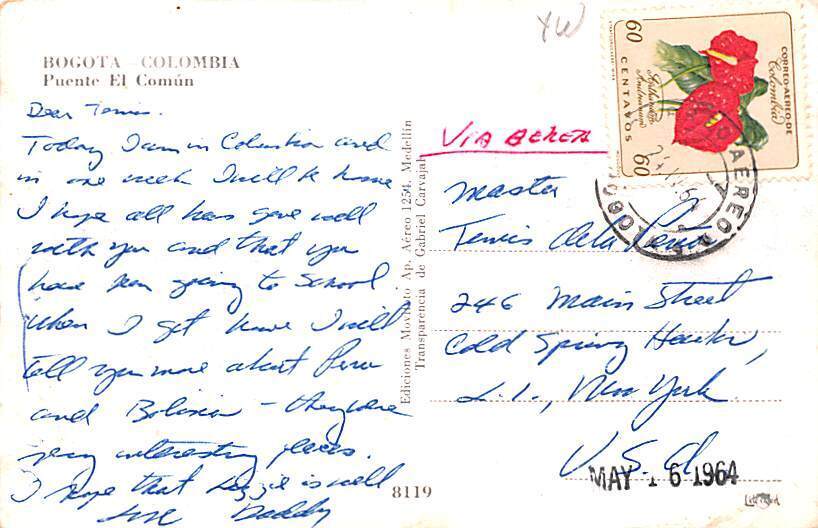 BOGOTA - COLOMBIA
Puente El Común
Dear Tennis.
Today I am in Colombia and
in one week I will be home
I hope all has gone well
with you and that you
have been going to School
When I get home I will
tell you more about Peru
and Bolivia - they were
very interesting places.
I hope that Lizzie is well
Love Daddy
8119
Ediciones Movifoto Ap. Aéreo 1254, Medellín
Transparencia de Gabriel Carvajal
VIA AEREA
Master
Tennis de la
246 Main Street
Cold Spring Harbor,
L.I., New York
U.S.A.
MAY 16 1964
CORREO AEREO DE
Colombia
60
CENTAVOS
60
Anthurium
Andreanum
AEREO